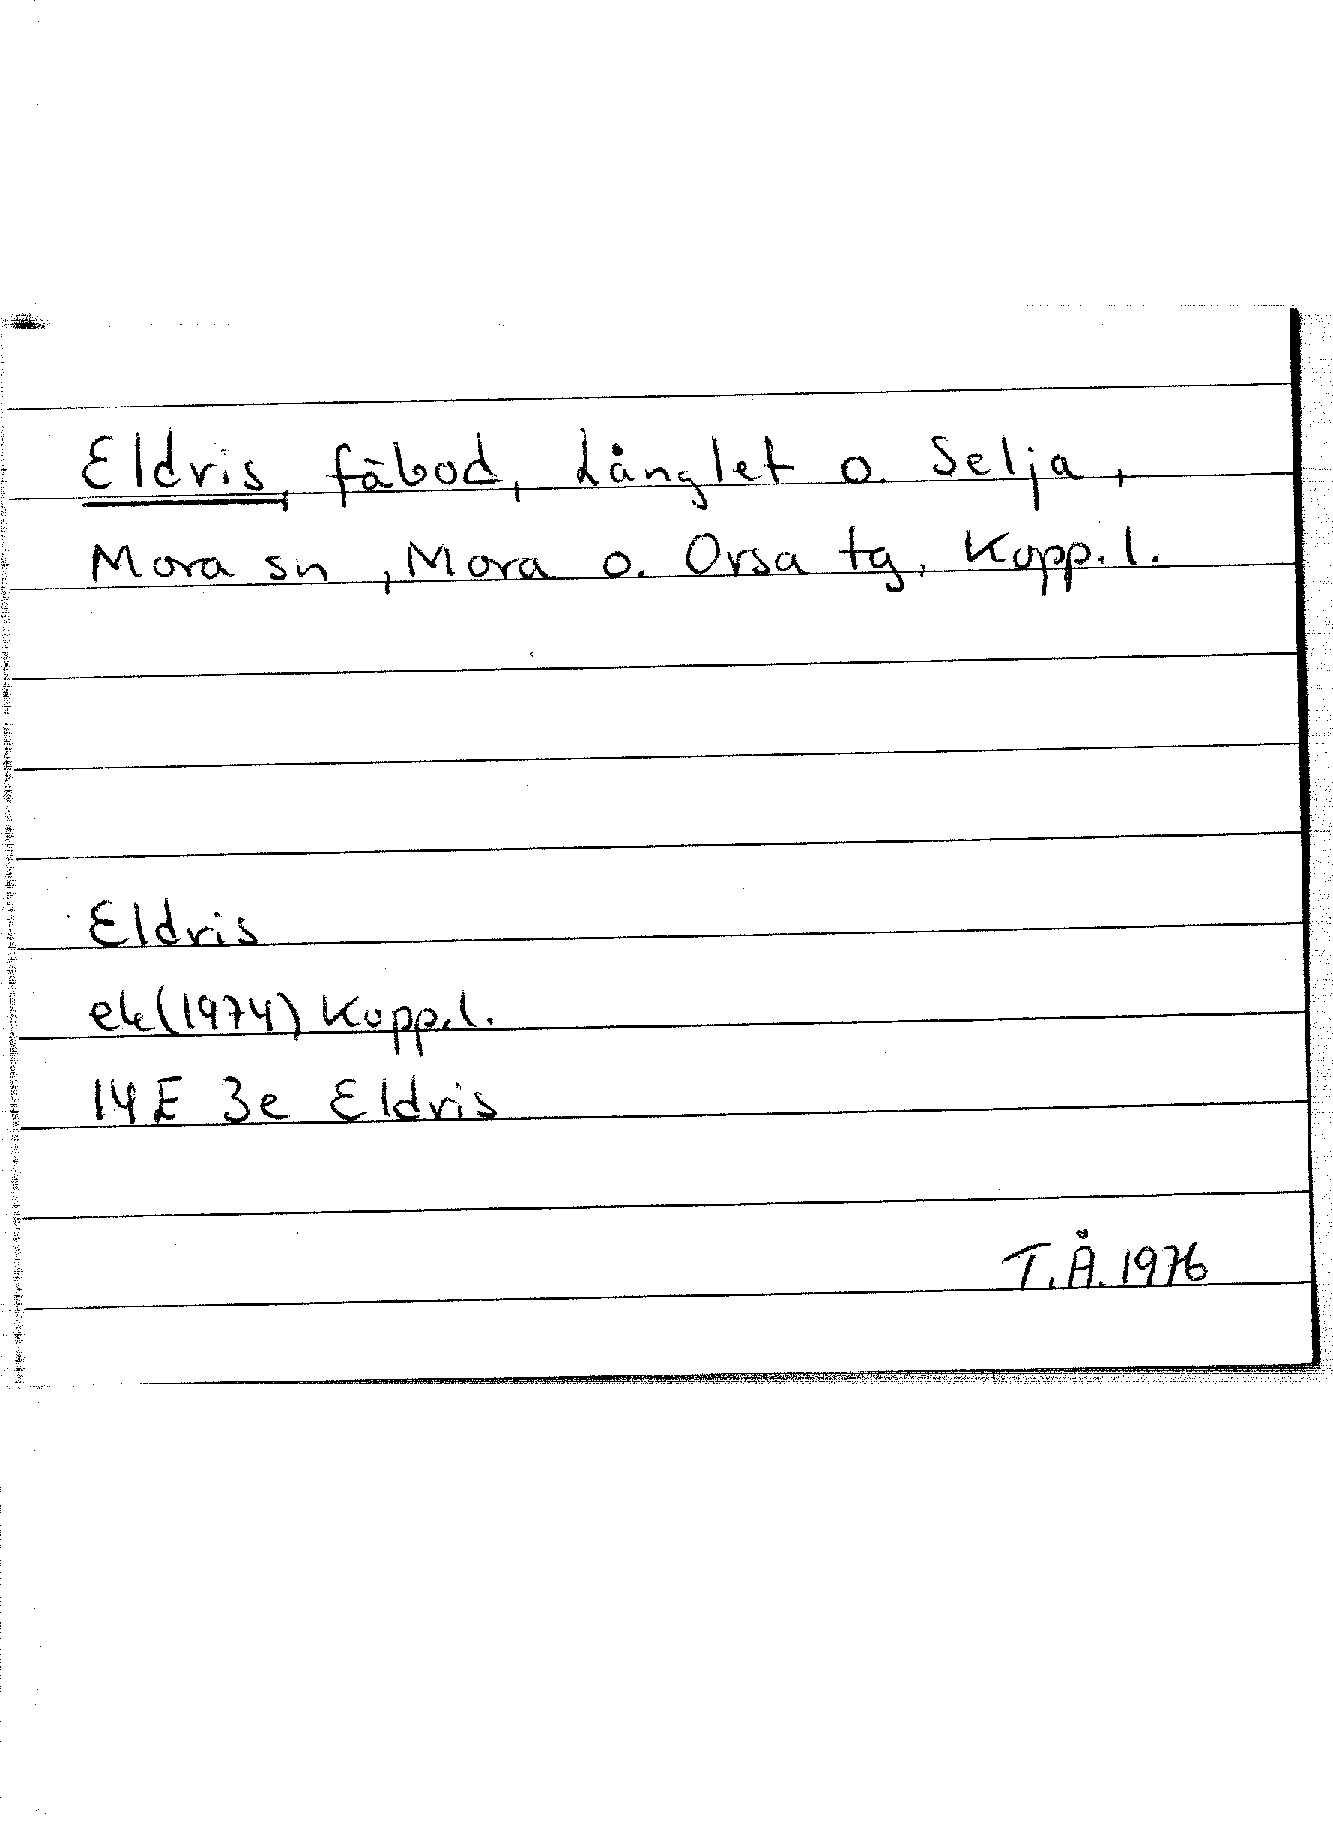 Eldris, fäbod, Långlet o. Selja,
Mora sn, Mora o. Orsa tg, Kopp. l.
Eldris
ek (1974) Kopp. l.
14E 3e Eldris
T.Å. 1976